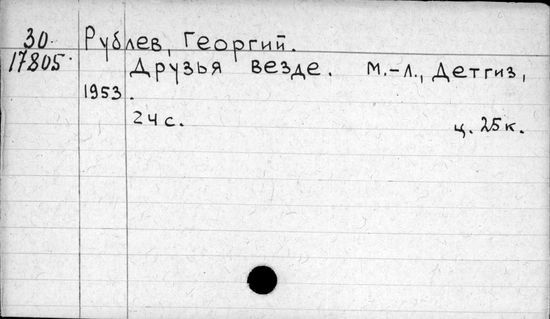 30
17805
Рублев, Георгий.
Друзья везде. М.-Л., Детгиз,
1953.
24 с. ц. 25 к.